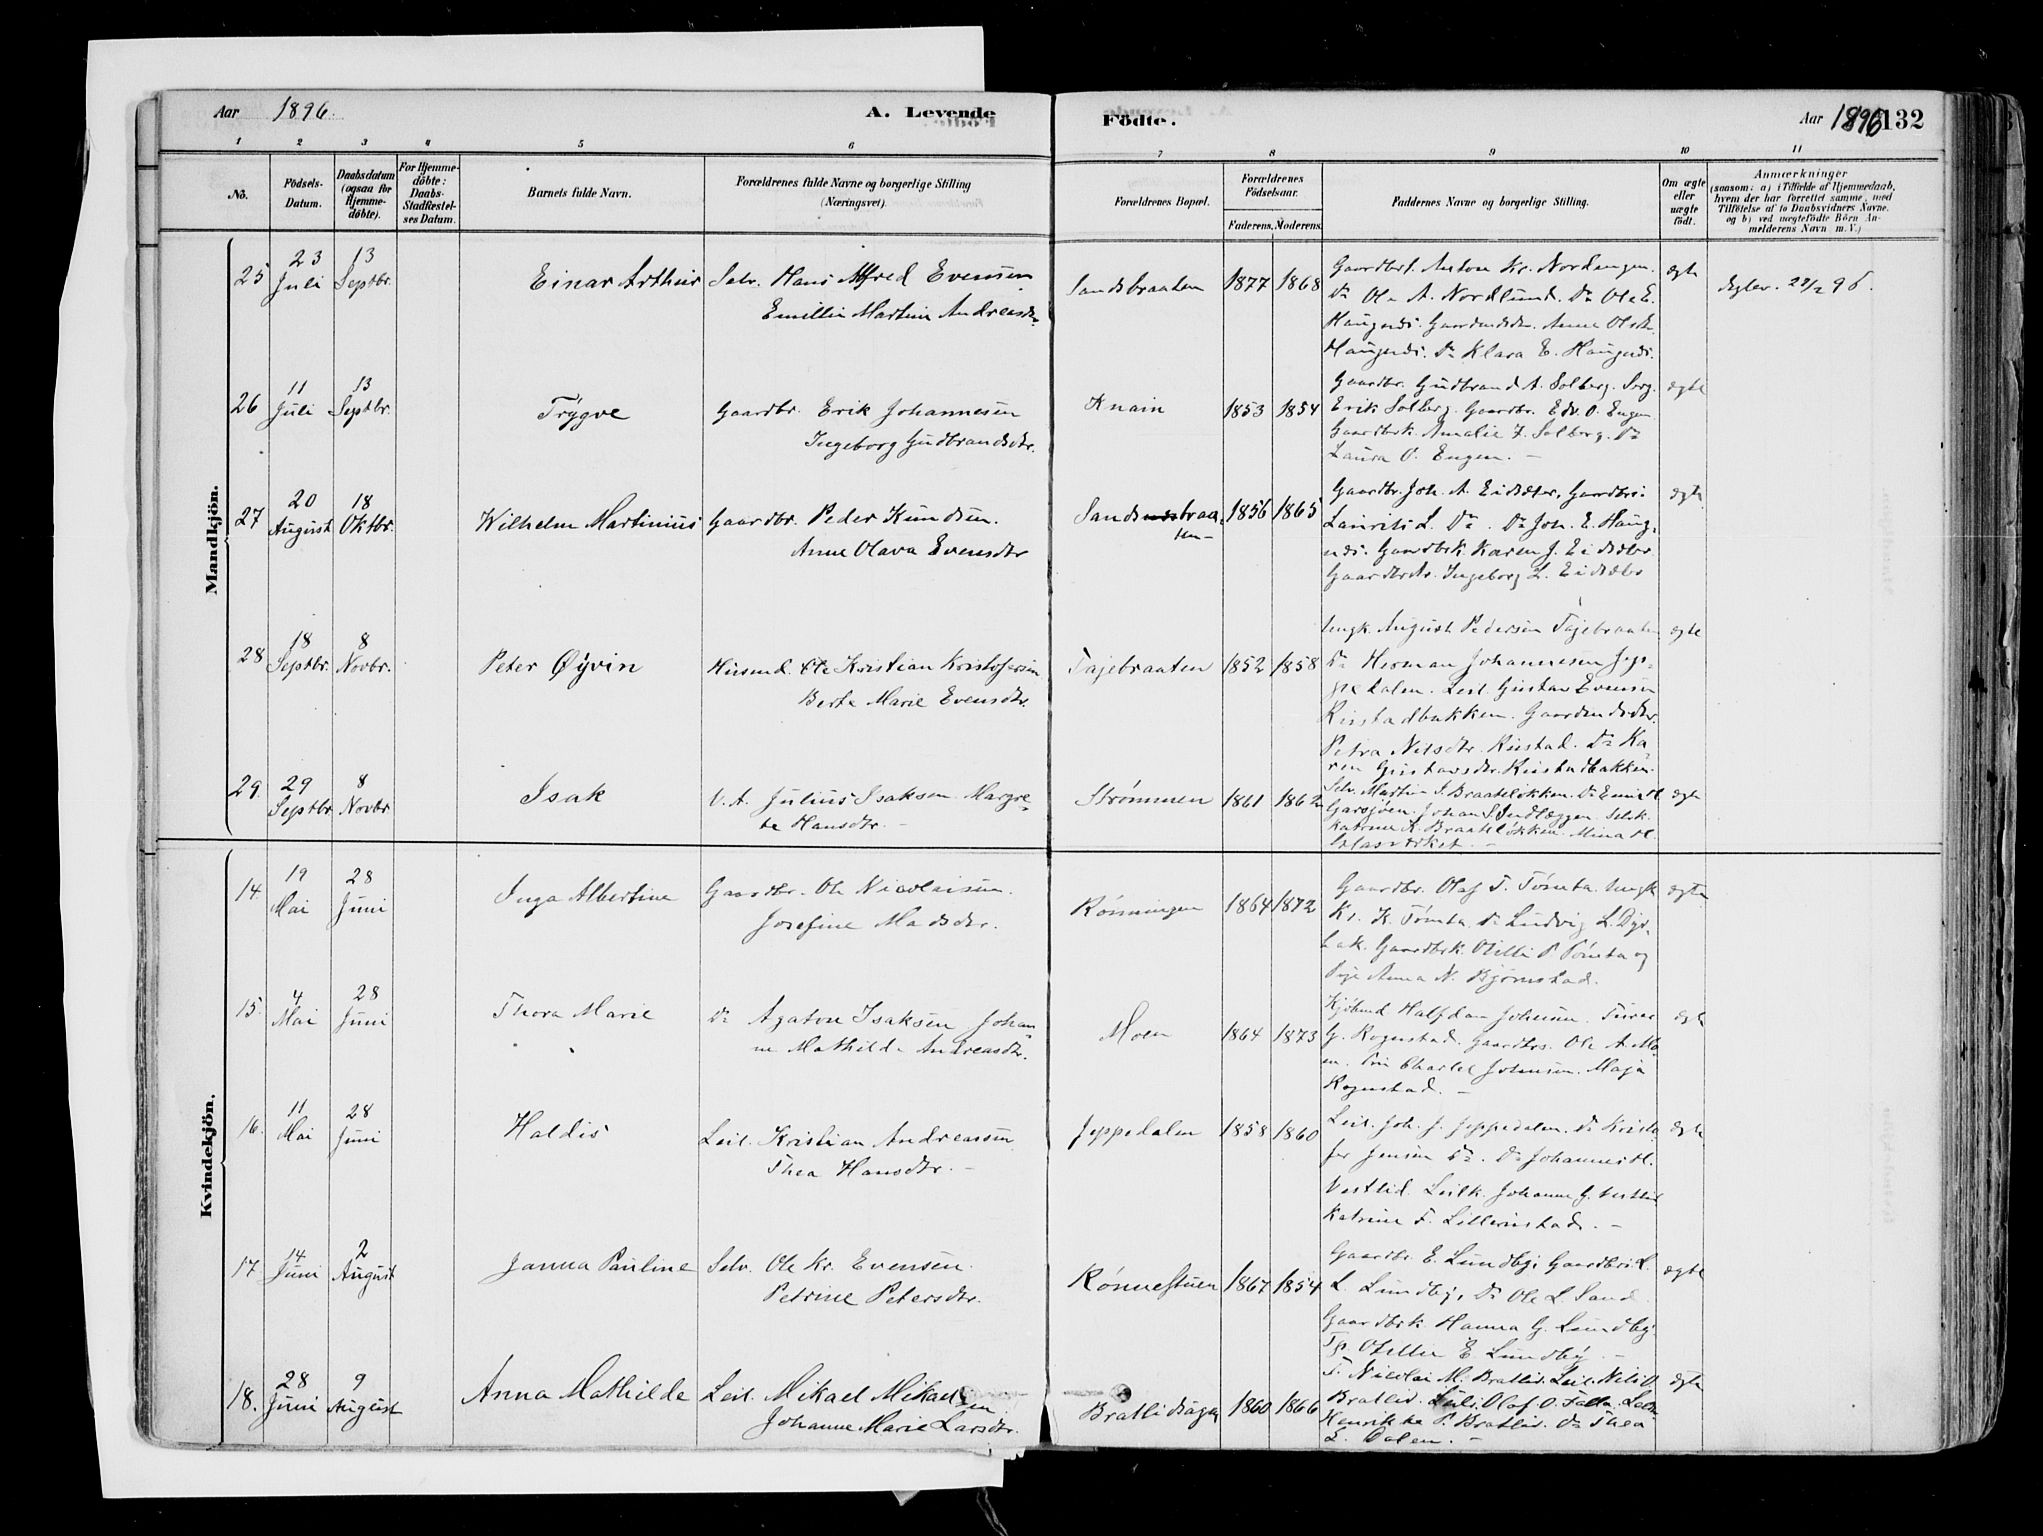 Aar 1896. A. Levende
Födte. Aar 1896 132
1 2 3 4 5 6 7 8 9 10 11
No.
Födsels-Datum.
Daabsdatum (ogsaa for Hjemme-döbte).
For Hjemme-döbte: Daabs-Stadfestel-ses Datum.
Barnets fulde Navn.
Forældrenes fulde Navne og borgerlige Stilling
(Næringsvei).
Forældrenes Bopæl.
Forældrenes Födselsaar.
Faderens. Moderens.
Faddernes Navne og borgerlige Stilling.
Om ægte eller uægte födt.
Anmærkninger
(saasom: a) i Tilfælde af Hjemmedaab,
hvem der har forrettet samme, med
Tilföielse af to Daabsvidners Navne.
og b) ved uægtefödte Börn An-
melderens Navn m. V.)
Mandkjön.
25 23 Juli 13 Septbr. Einar Arthur Selv. Hans Alfred Evensen
Emillie Martine Andreasdtr.
Sandsbraaten 1877 1868 Gaardbr. Anton Kr. Nordengen. ægte
Do Ole A. Nordlund. Do Ole E.
Haugnæs. Anna
Haugnæs. Do Klara E. Haugnæs.
26 11 Juli 13 Septbr. Trygve Gaardbr. Erik Johannesen
Ingeborg Gudbrandsdtr.
Knain 1853 1854 Gaardbr. Gudbrand A. Solberg. ægte
Erik Solberg. Gaardbr. Edv. O. Engen
Gaardbrk. Amalie Solberg. Do
Laura O. Engen. –
27 20 August 18 Oktbr. Wilhelm Martinius Gaardbr. Peder Knudsen.
Anne Olava Evensdtr
Sandsbraa-
ten – 1856 1865 Gaardbr. Joh. A. Eidsæter, Gaardbr. ægte
Laurits L. Do. Do Joh. E. Haug-
næs. Gaardbrk. Karen J. Eidsæter
Ingeborg L. Eidsæter
28 18 Septbr. 8 Novbr. Peter Øyvin Husmd. Ole Kristian Kristofersen
Berte Marie Evensdtr.
Tajebraaten 1852 1858 Ungk. August Pedersen Tajebraaten ægte
Do Herman Johannesen Jep-
pedalen. Leil. Gustav Evensen
Rustadbakken. Gaardmdsdtr.
Petra Nilsdtr. Rustad. Do Ka-
ren Gustavsdtr. Rustadbakken.
29. 29 Septbr 8 Novbr Isak V. A. Julius Isaksen Margre-
te Hansdtr. –
Strømmen 1861 1862 Selv. Martin S. Braateløkken. ægte
Garsjøen. Johan S.
Katrine K. Braateløkken. Mina
Glasværket. –
Kvindekjön.
14. 19 Mai 28 Juni Inga Albertine Gaardbr. Ole Nicolaisen.
Josefine Madsdtr.
Rønningen 1864 1872 Gaardbr. Olaf T. Tømta. Ungk ægte
Kr. K. Tømta. Do Ludvig L. Dyr-
bak. Gaardbrk. Otilli P. Tømta og
Pige Anna N. Bjørnstad.
15. 4 Mai 28 Juni Thora Marie Do Agaton Isaksen Johan
ne Mathilde Andreasdtr.
Moen 1864 1873 Kjøbmd Halfdan Johnsen. ægte
G. Rognstad. Gaardbrs. Ole A. Mo-
en. Charles Johnsen. Maja
Rognstad. –
16. 11 Mai 28 Juni Haldis Leil. Kristian Andreassen
Thea Hansdtr. –
Jeppedalen 1858 1860 Leil. Joh. J. Jeppedalen. Do Kristo- ægte
fer Jensen Do. Do Johannes H.
Vestlid. Leilk. Johanne G. Vestlid
Katrine F. Lillerustad. –
17 14 Juni 2 August Janna Pauline Selv. Ole Kr. Evensen.
Petrine Petersdtr.
Rønnestuen 1867 1854 Gaardbr. E. Lundby, ægte
L. Lundby, Do Ole L. Sand.
Gaardbrk Hanna G. Lundby.
Otillie E. Lundby. –
18. 28 Juni 9 August Anna Mathilde Leil. Mikael Mikael
sen
Johanne Marie Larsdtr.
Bratlidsagen 1860 1866 Nicolai M. Bratlid. Leil. Nils O. ægte
Bratlid. Olaf O.
Henrikke P. Bratlid. Do Thea
L. Dalen. –